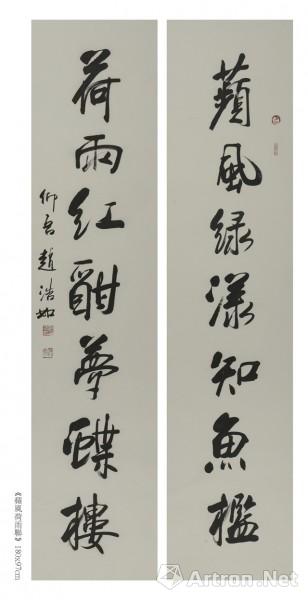 蘋風緑漾知魚檻
荷雨紅酣夢蝶樓
仰吾趙浩如
《蘋風荷雨聯》180x97cm
Artron.Net